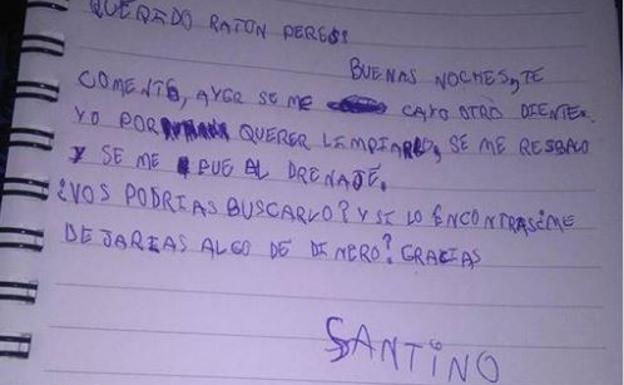 QUERIDO RATON PERES:
BUENAS NOCHES, TE
COMENTO, AYER SE ME CAYO OTRO DIENTE.
YO POR QUERER LIMPIARLO, SE ME RESBALO
Y SE ME FUE AL DRENAJE.
¿VOS PODRIAS BUSCARLO? Y SI LO ENCONTRAS ¿ME
DEJARIAS ALGO DE DINERO? GRACIAS
SANTINO